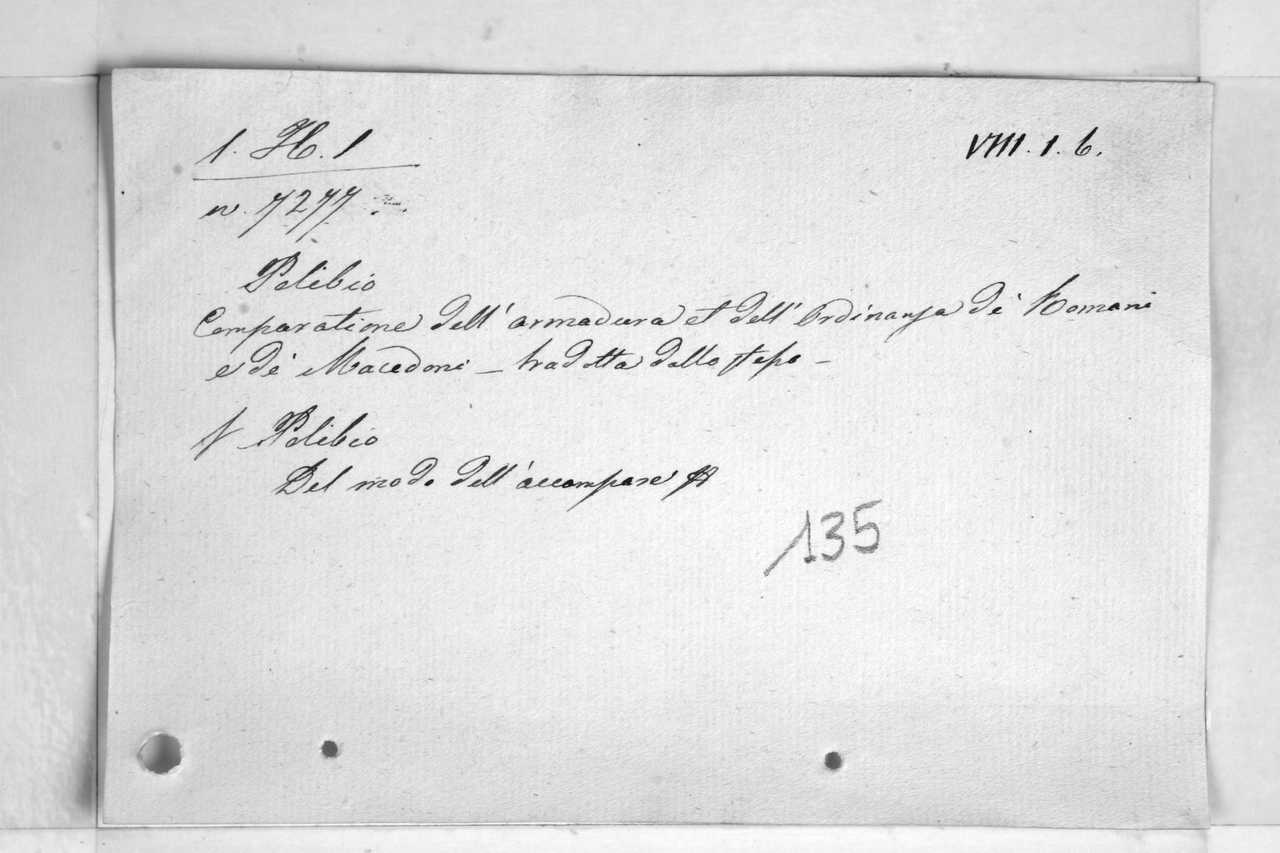 1. H. 1
VIII. 1. 6.
n. 7277
Polibio
Comparatione dell' armadura et dell' Ordinanza de' Romani
e de' Macedoni _ tradotta dallo stesso _
Polibio
Del modo dell' accampare
135